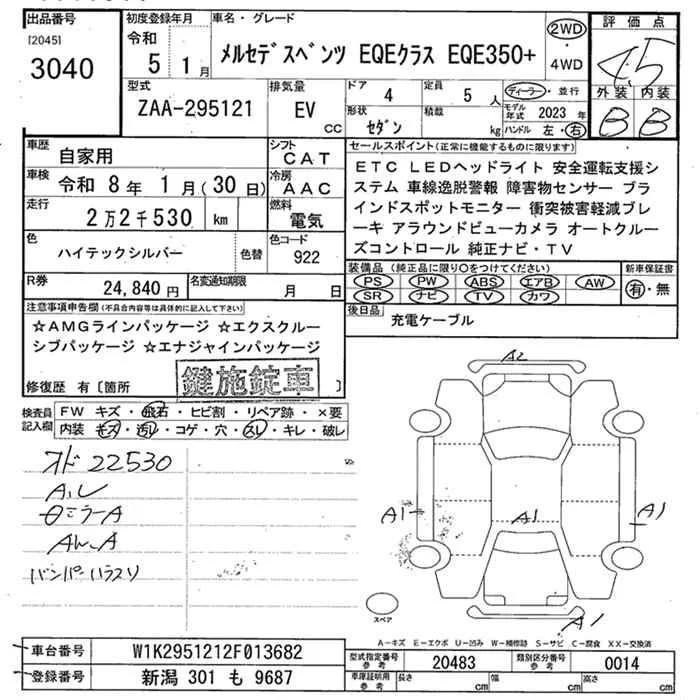 出品番号
[2045]
3040
初度登録年月
令和
5 1月
車名・グレード
メルセデスベンツ EQEクラス EQE350+
2WD
・
4WD
評価点
4.5
外装 内装
B B
型式
ZAA-295121
排気量
EV
CC
ドア
4
定員
5 人
ディーラー・並行
形状
セダン
積載
kg
モデル年式 2023年
ハンドル 左・右
車歴
自家用
シフト
CAT
車検
令和 8年 1月(30日)
冷房
AAC
走行
2万2千530 km
燃料
電気
色
ハイテックシルバー
色替
色コード
922
R券
24,840円
名変通知期限
月 日
セールスポイント(正常に機能するものに限ります)
ETC LEDヘッドライト 安全運転支援シ
ステム 車線逸脱警報 障害物センサー ブラ
インドスポットモニター 衝突被害軽減ブレ
ーキ アラウンドビューカメラ オートクルー
ズコントロール 純正ナビ・TV
装備品(純正品に限り○をつけてください)
PS PW ABS エアB AW
SR ナビ TV カワ
新車保証書
有・無
後日品
充電ケーブル
注意事項申告欄(不具合内容等は具体的に記入して下さい)
☆AMGラインパッケージ ☆エクスクルー
シブパッケージ ☆エナジャインパッケージ
鍵施錠車
修復歴 有〔箇所 〕
検査員
記入欄
FW キズ・飛石・ヒビ割・リペア跡・×要
内装 キズ・汚レ・コゲ・穴・スレ・キレ・破レ
オド22530
A.L
ミラーA
A
バンパーハラスリ
A2
A1
A1
A1
A1
スペア
A-キズ E-エクボ U-凹み W-補修跡 S-サビ C-腐食 XX-交換済
車台番号
W1K2951212F013682
登録番号
新潟 301 も 9687
型式指定番号
参考
20483
類別区分番号
参考
0014
車庫証明用
参考
長さ cm
幅 cm
高さ cm